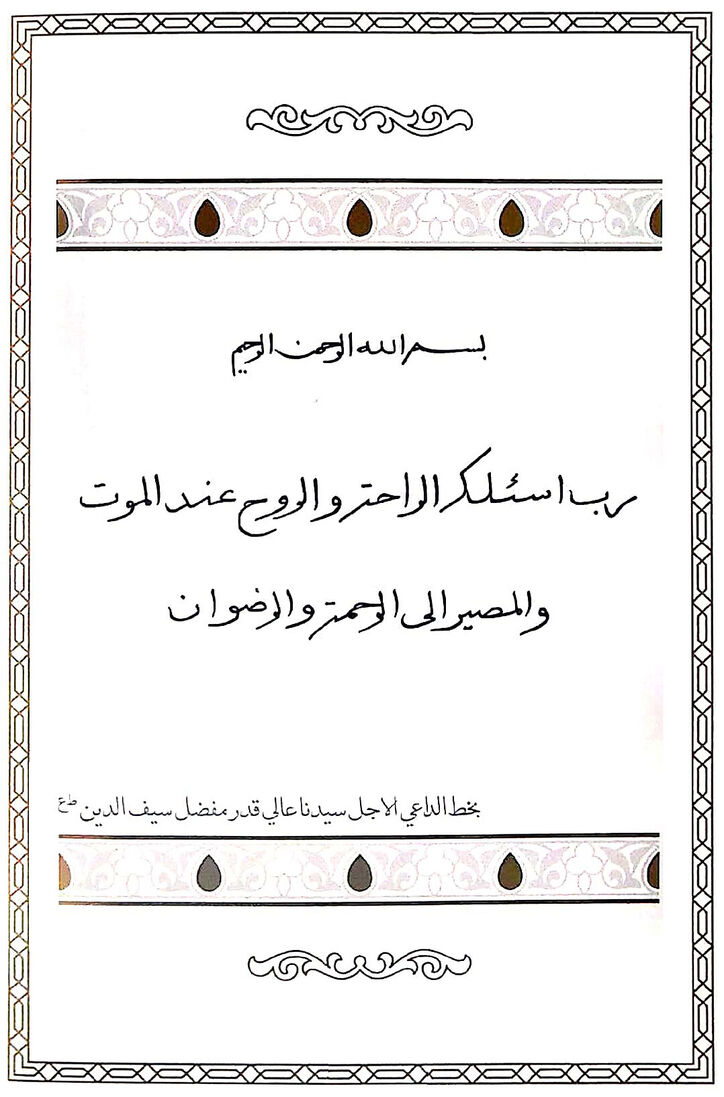 بسم الله الرحمن الرحيم
رب اسئلك الراحة والروح عند الموت
والمصير الى الرحمة والرضوان
بخط الداعي الاجل سيدنا عالي قدر مفضل سيف الدين طع